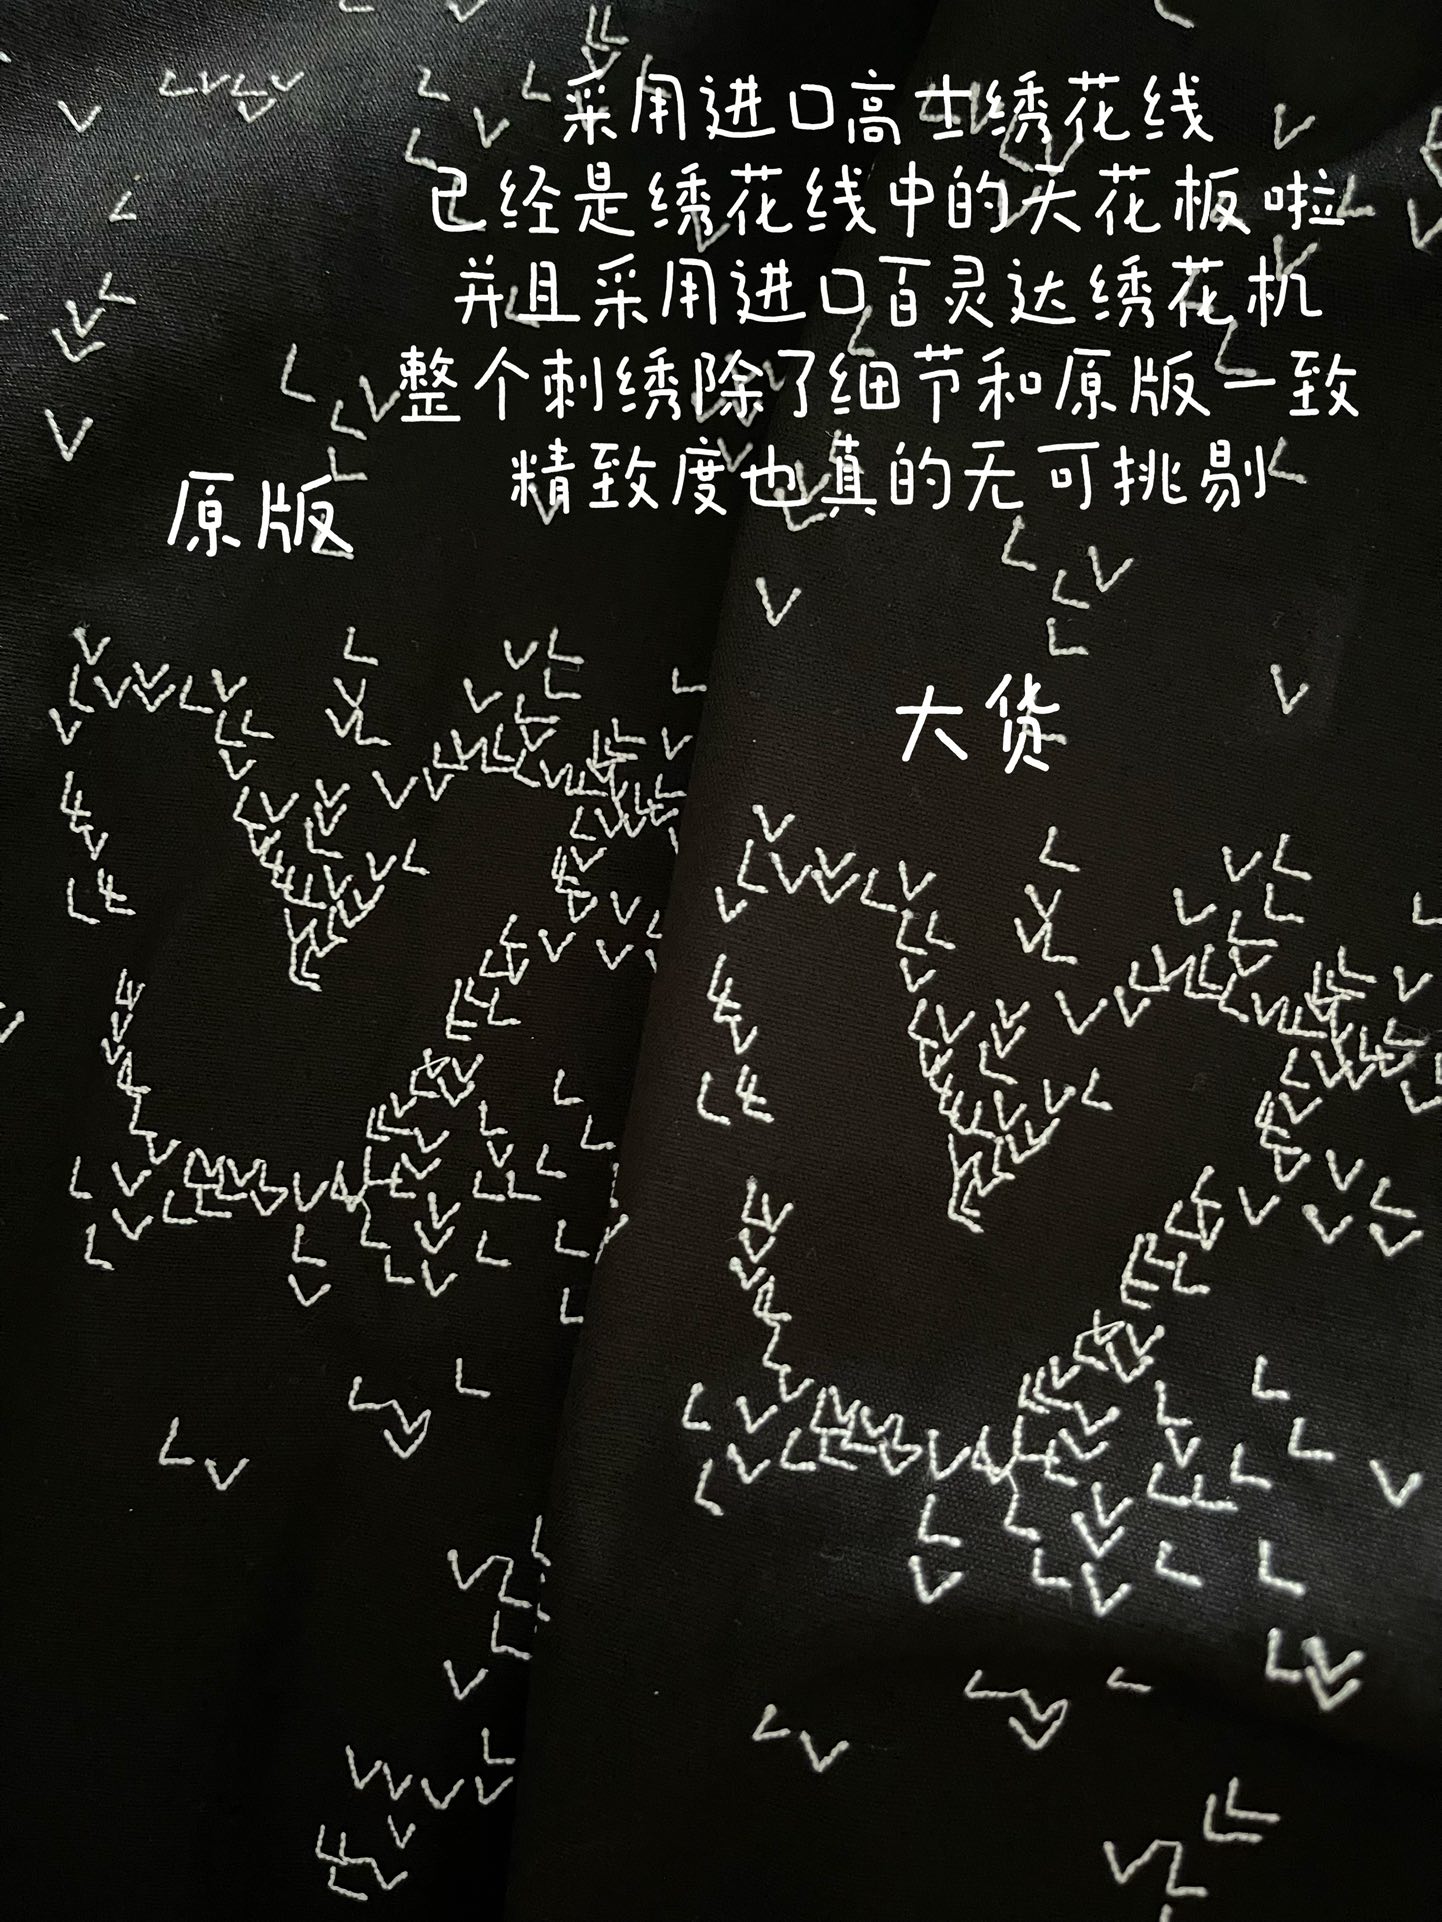 采用进口高士绣花线
已经是绣花线中的天花板啦
并且采用进口百灵达绣花机
整个刺绣除了细节和原版一致
精致度也真的无可挑剔
原版
大货